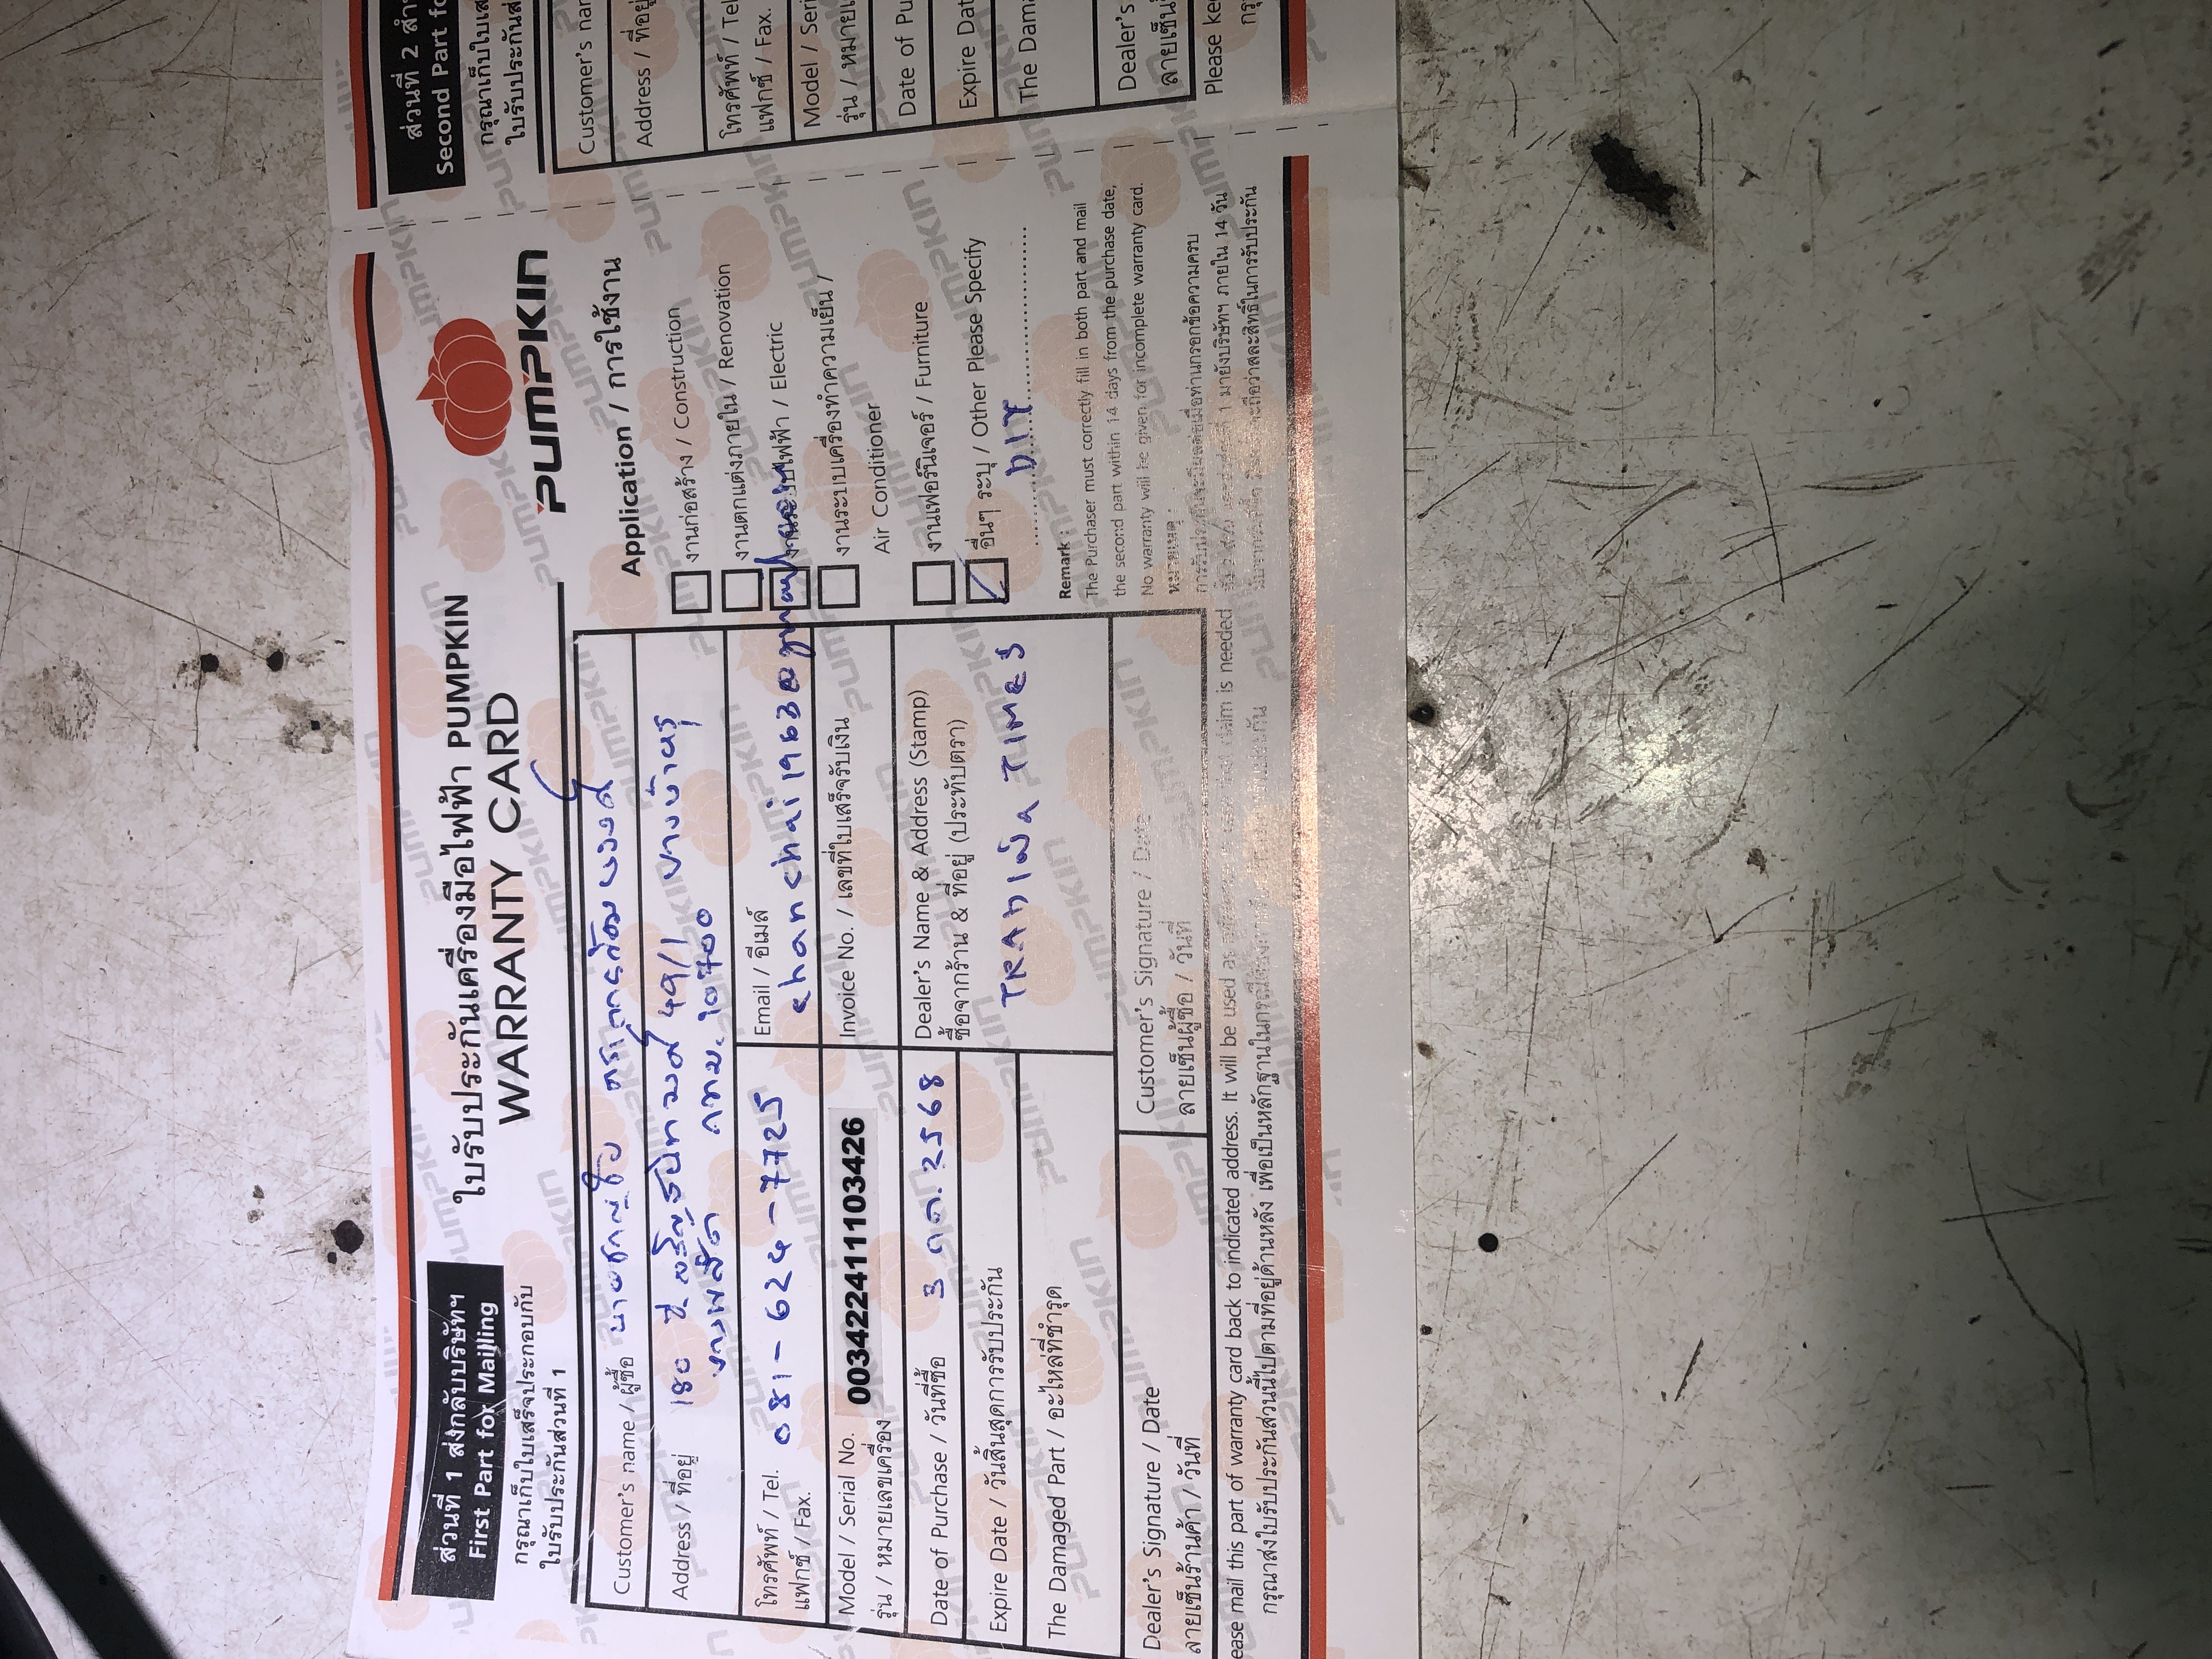 ส่วนที่ 1 ส่งกลับบริษัทฯ
First Part for Mailling
กรุณาเก็บใบเสร็จประกอบกับ
ใบรับประกันส่วนที่ 1
ใบรับประกันเครื่องมือไฟฟ้า PUMPKIN
WARRANTY CARD
PUMPKIN
Customer's name / ผู้ซื้อ นายชาญชัย
Address / ที่อยู่ 180 ซ.จรัญสนิทวงศ์ 49/1 บางบำหรุ
บางพลัด กทม. 10700
โทรศัพท์ / Tel. 081-624-7725
แฟกซ์ / Fax.
Email / อีเมล์
chanchai1963@gmail.com
Model / Serial No. 003422411103426
รุ่น / หมายเลขเครื่อง
Invoice No. / เลขที่ใบเสร็จรับเงิน
Date of Purchase / วันที่ซื้อ 3 2568
Expire Date / วันสิ้นสุดการรับประกัน
The Damaged Part / อะไหล่ที่ชำรุด
Dealer's Name & Address (Stamp)
ซื้อจากร้าน & ที่อยู่ (ประทับตรา)
TIMES
Dealer's Signature / Date
ลายเซ็นร้านค้า / วันที่
Customer's Signature / Date
ลายเซ็นผู้ซื้อ / วันที่
Application / การใช้งาน
งานก่อสร้าง / Construction
งานตกแต่งภายใน / Renovation
งานระบบไฟฟ้า / Electric
งานระบบเครื่องทำความเย็น /
Air Conditioner
งานเฟอร์นิเจอร์ / Furniture
อื่นๆ ระบุ / Other Please Specify
DIY
Remark :
The Purchaser must correctly fill in both part and mail
the second part within 14 days from the purchase date,
No warranty will be given for incomplete warranty card.
หมายเหตุ :
มายังบริษัทฯ ภายใน 14 วัน
จะถือว่าสละสิทธิ์ในการรับประกัน
ease mail this part of warranty card back to indicated address. It will be used as claim is needed
กรุณาส่งใบรับประกันส่วนนี้ไปตามที่อยู่ด้านหลัง เพื่อเป็นหลักฐานในกรณี
ส่วนที่ 2 สำ
Second Part fo
กรุณาเก็บใบเส
ใบรับประกันส่
Customer's nam
Address / ที่อยู่
โทรศัพท์ / Tel
แฟกซ์ / Fax.
Model / Seri
รุ่น / หมายเ
Date of Pu
Expire Dat
The Dama
Dealer's
ลายเซ็น
Please ke
กรุ